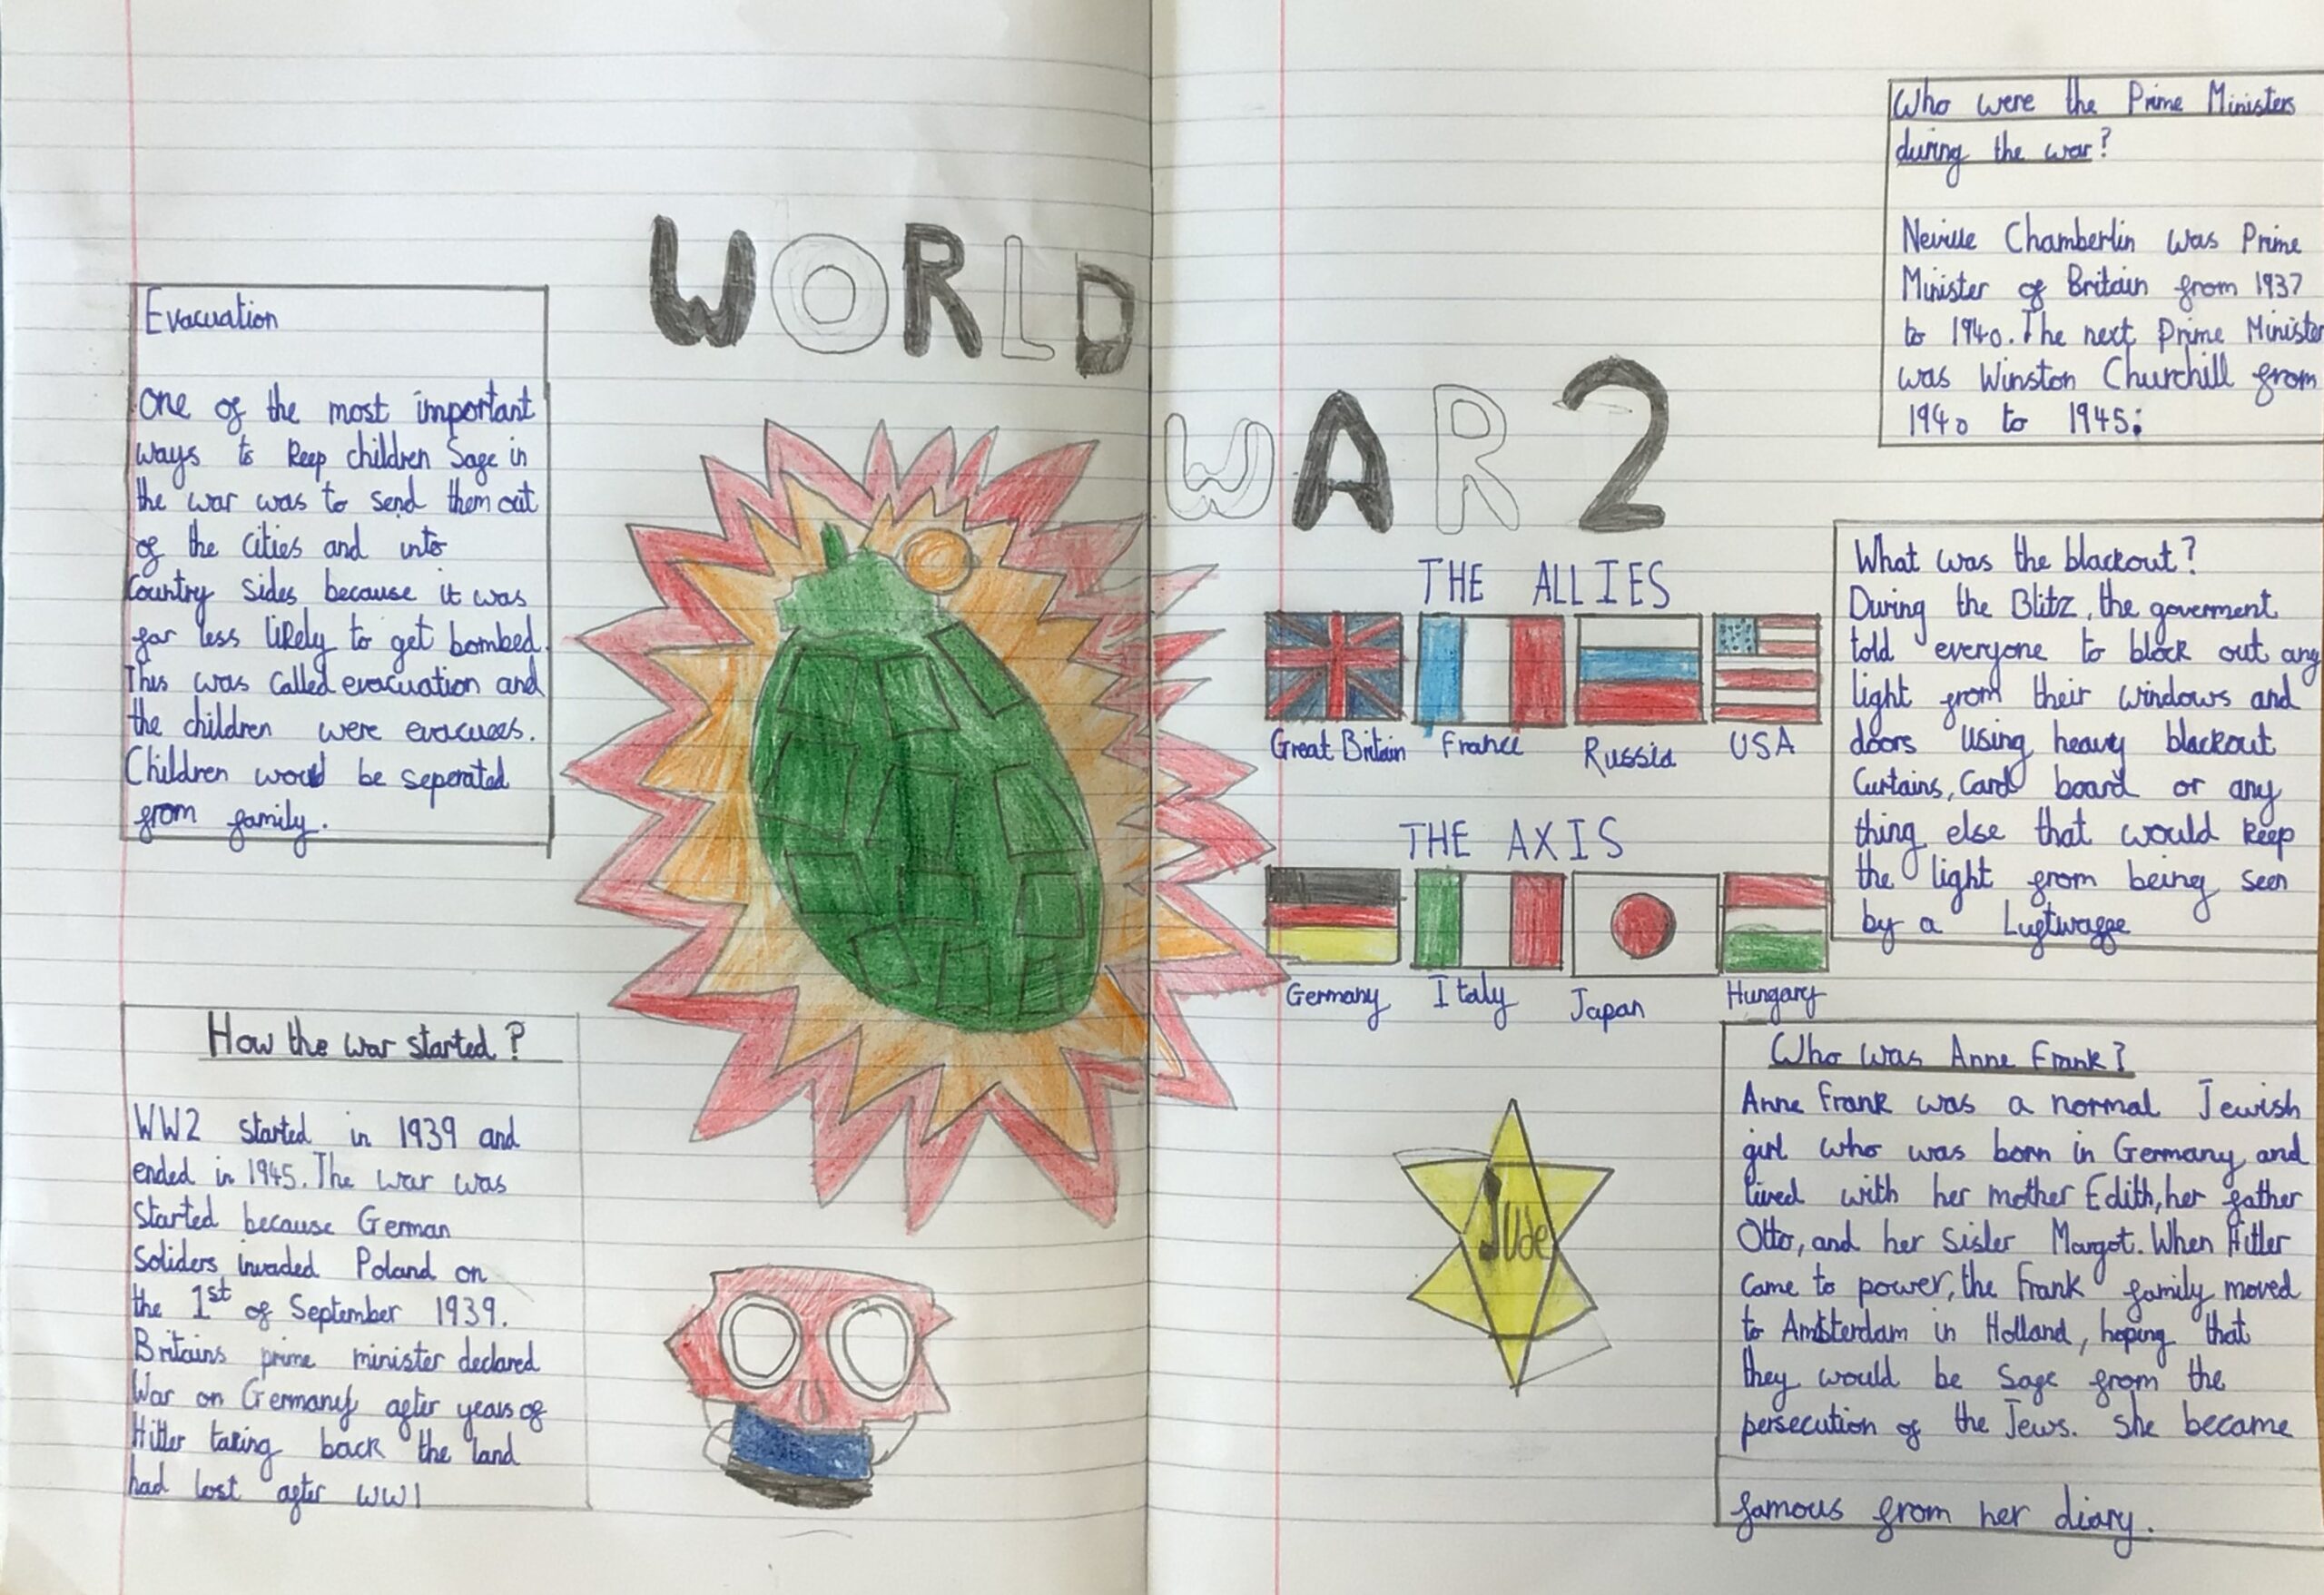 WORLD
WAR 2
Evacuation
One of the most important
ways to keep children safe in
the war was to send them out
of the cities and into
Country sides because it was
far less likely to get bombed.
This was called evacuation and
the children were evacuees.
Children would be seperated
from family.
How the war started?
WW2 started in 1939 and
ended in 1945. The war was
started because German
Soliders invaded Poland on
the 1st of September 1939.
Britains prime minister declared
War on Germany after years of
Hitler taking back the land
had lost after WW1
THE ALLIES
Great Britain France Russia USA
THE AXIS
Germany Italy Japan Hungary
Jude
Who were the Prime Ministers
during the war?
Neville Chamberlin was Prime
Minister of Britain from 1937
to 1940. The next Prime Minister
was Winston Churchill from
1940 to 1945.
What was the blackout?
During the Blitz, the goverment
told everyone to block out any
light from their windows and
doors using heavy blackout
Curtains, Card board or any
thing else that would keep
the light from being seen
by a Luftwaffe
Who was Anne Frank?
Anne Frank was a normal Jewish
girl who was born in Germany and
lived with her mother Edith, her father
Otto, and her sister Margot. When Hitler
came to power, the Frank family moved
to Amsterdam in Holland, hoping that
they would be safe from the
persecution of the Jews. She became
famous from her diary.